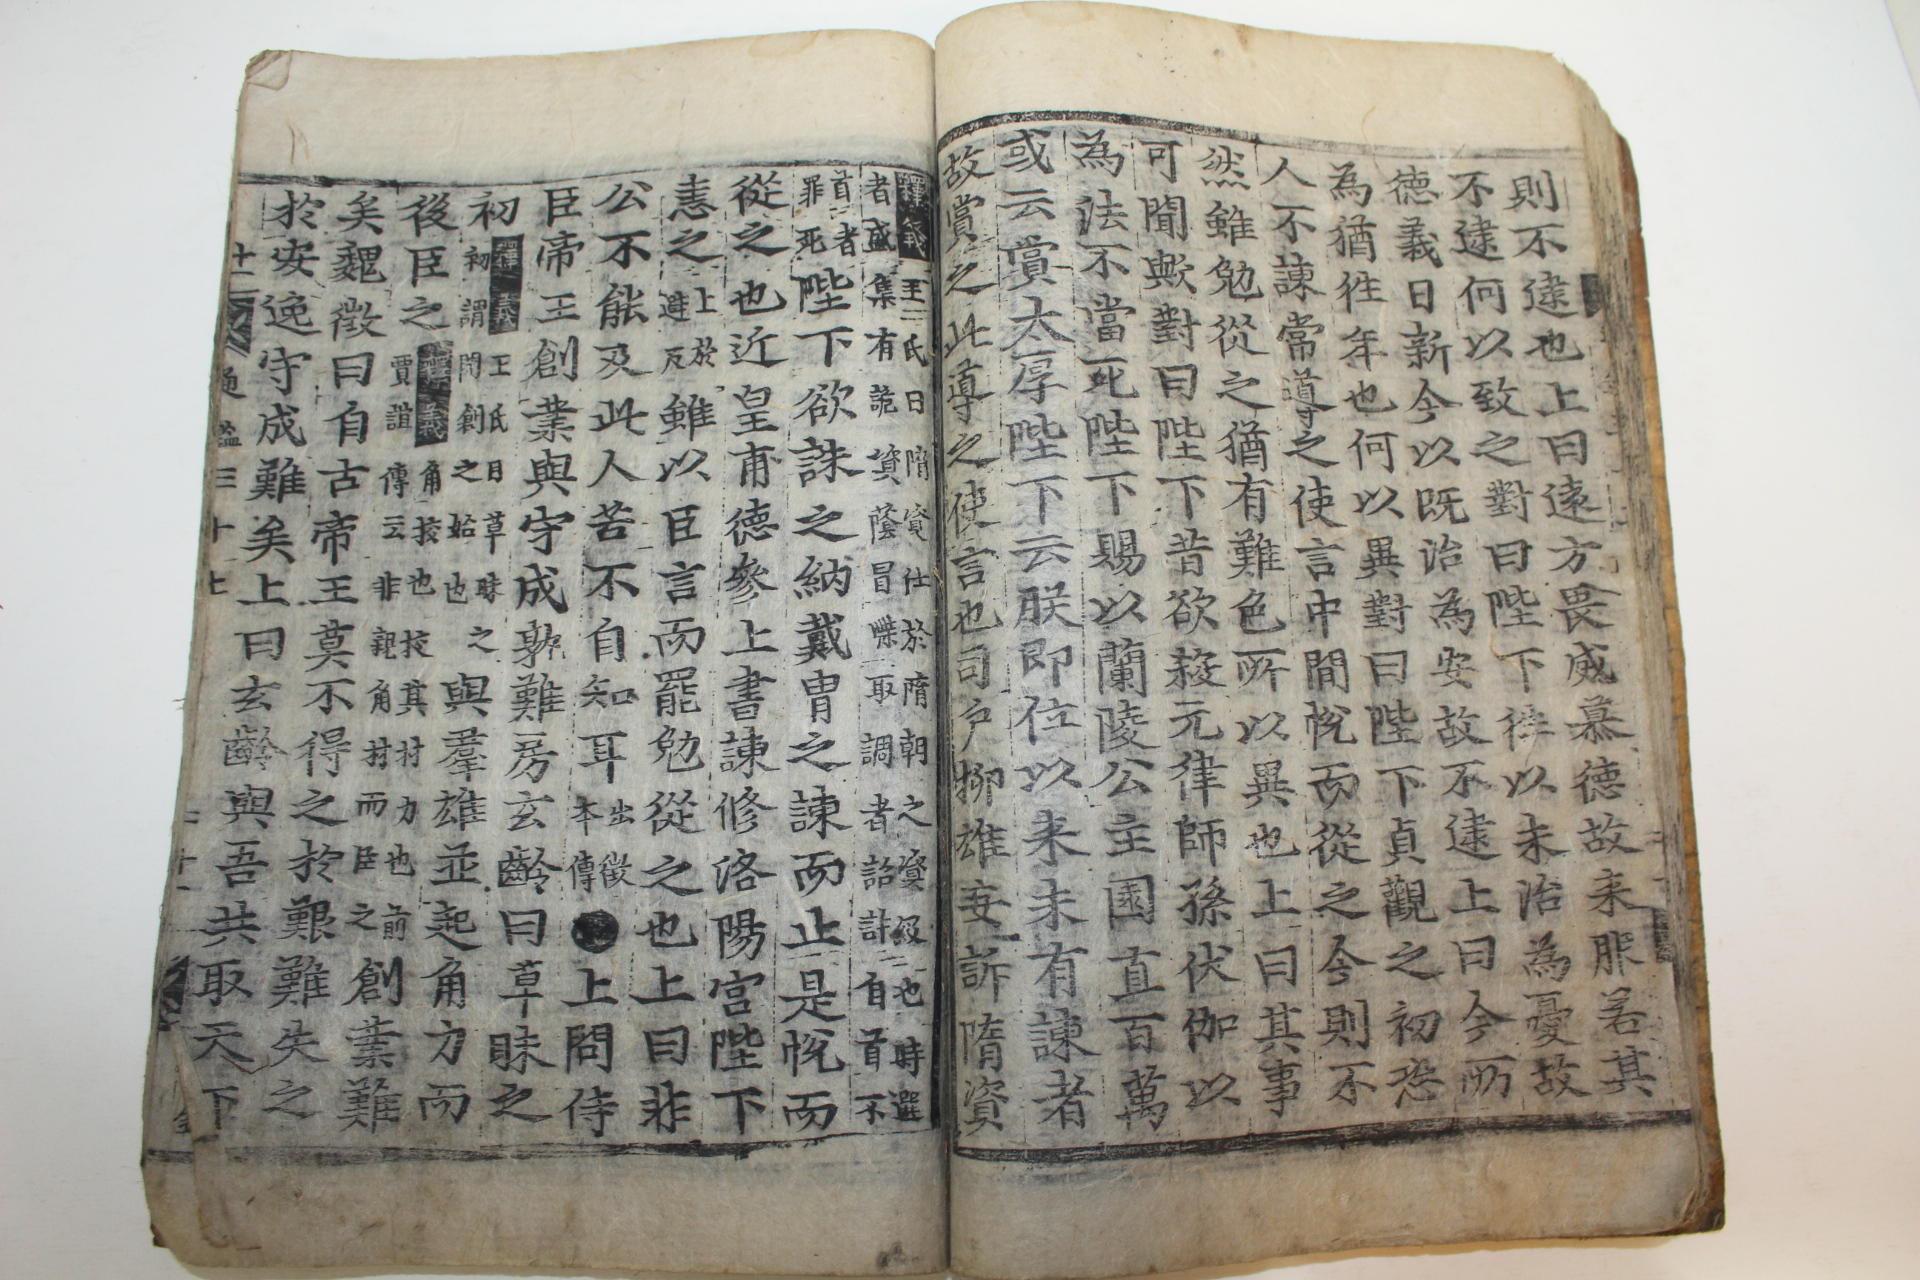 則不逮也上曰遠方畏威慕德故来服若其
不逮何以致之對曰陛下徃以未治為憂故
德義日新今以既治為安故不逮上曰今所
為猶徃年也何以異對曰陛下貞觀之初恐
人不諫常導之使言中間悅而從之今則不
然雖勉從之猶有難色所以異也上曰其事
可聞歟對曰陛下昔欲殺元律師孫伏伽以
為法不當死陛下賜以蘭陵公主園直百萬
或云賞太厚陛下云朕即位以来未有諫者
故賞之此導之使言也司戶柳雄妄訴隋資
釋義王氏曰隋資仕於隋朝之資級也時選
者盛集有詭資蔭冒牒取調者詔許自首不
首者罪死陛下欲誅之納戴冑之諫而止是悅而
從之也近皇甫德參上書諫修洛陽宮陛下
恚之上於避反雖以臣言而罷勉從之也上曰非
公不能及此人苦不自知耳出徵本傳●上問侍
臣帝王創業與守成孰難房玄齡曰草昧之
初釋義王氏曰草昧之初謂問創之始也與羣雄並起角方而
後臣之釋義角挍也挍其材力也前賈誼傳云非親角材而臣之創業難
矣魏徵曰自古帝王莫不得之於艱難失之
於安逸守成難矣上曰玄齡與吾共取天下
通鑑三十七